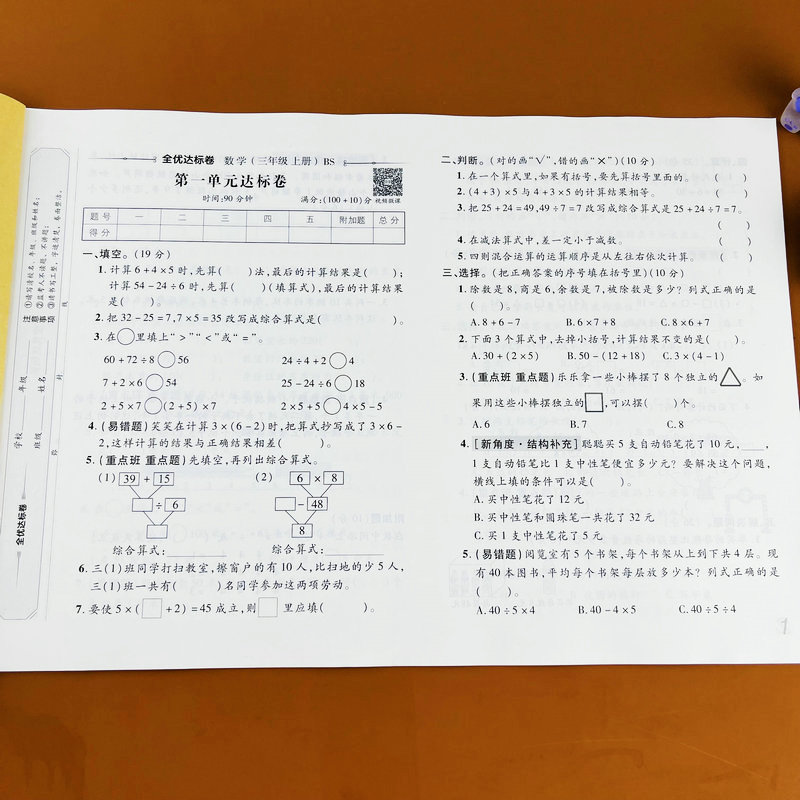 全优达标卷 数学(三年级上册) BS
第一单元达标卷
时间:90分钟 满分:(100+10)分 视频微课
题号 一 二 三 四 五 附加题 总分
得分
一、填空。(19分)
1. 计算6+4×5时,先算( )法,最后的计算结果是( );
计算54-24÷6时,先算( )(填算式),最后的计算结果
是( )。
2. 把32-25=7,7×5=35改写成综合算式是( )。
3. 在○里填上“>”“<”或“=”。
60+72÷8○56 24÷4+2○4
7+2×6○54 25-24÷6○18
2+5×7○(2+5)×7 2×5+5○4×5-5
4. (易错题)笑笑在计算3×(6-2)时,把算式抄写成了3×6-
2,这样计算的结果与正确结果相差( )。
5. (重点班 重点题)先填空,再列出综合算式。
(1) 39 + 15 (2) 6 × 8
÷ 6 - 48
8
综合算式: 综合算式:
6. 三(1)班同学打扫教室,擦窗户的有10人,比扫地的少5人,
三(1)班一共有( )名同学参加这两项劳动。
7. 要使5×(□+2)=45成立,则□里应填( )。
二、判断。(对的画“√”,错的画“×”)(10分)
1. 在一个算式里,如果有括号,要先算括号里面的。 ( )
2. (4+3)×5与4+3×5的计算结果相等。 ( )
3. 把25+24=49,49÷7=7改写成综合算式是25+24÷7=7。
( )
4. 在减法算式中,差一定小于减数。 ( )
5. 四则混合运算的运算顺序是从左往右依次计算。 ( )
三、选择。(把正确答案的序号填在括号里)(10分)
1. 除数是8,商是6,余数是7,被除数是多少?列式正确的是
( )。
A. 8+6-7 B. 6×7+8 C. 8×6+7
2. 下面3个算式中,去掉小括号,计算结果不变的是( )。
A. 30+(2×5) B. 50-(12+18) C. 3×(4-1)
3. (重点班 重点题)乐乐拿一些小棒摆了8个独立的△。如
果用这些小棒摆独立的□,可以摆( )个。
A. 6 B. 7 C. 8
4. [新角度·结构补充]聪聪买5支自动铅笔花了10元,____,
1支自动铅笔比1支中性笔便宜多少元?要解决这个问题,
横线上填的条件可以是( )。
A. 买中性笔花了12元
B. 买中性笔和圆珠笔一共花了32元
C. 买1支中性笔花了5元
5. (易错题)阅览室有5个书架,每个书架从上到下共4层。现
有40本图书,平均每个书架每层放多少本?列式正确的是
( )。
A. 40÷5×4 B. 40-4×5 C. 40÷5÷4
1
全优达标卷
学校
年级
班级
姓名
注意事项
①请写清校名、年级、班级和姓名;
②监考人不读题、不讲题;
③请书写工整,字迹清楚,卷面整洁。